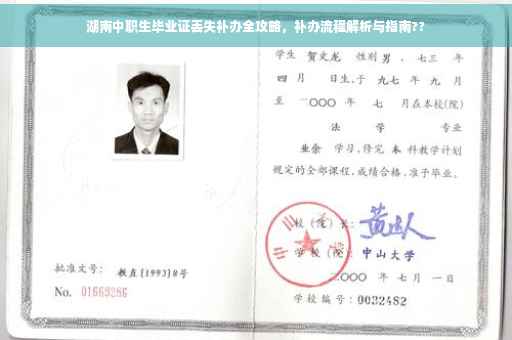 湖南中职生毕业证丢失补办全攻略，补办流程解析与指南??
学生 贺文龙 性别 男 ，七三 年
四 月 日生，于 九七 年 九 月
至 二〇〇〇 年 七 月在本校(院)
法 学 专业
业余 学习，修完 本 科教学计划
规定的全部课程，成绩合格，准予毕业。
校 (院) 长：
学 校 (院)： 中山大学
二〇〇〇 年 七 月 一 日
批准文号： 教直[1993]8号
No. 01669286
学校编号：0032482